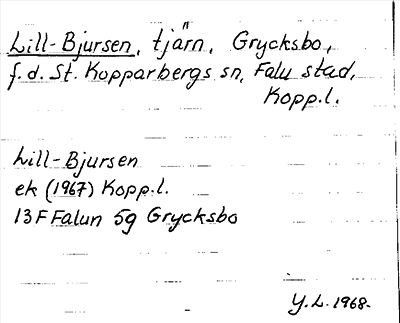 Lill-Bjursen, tjärn, Grycksbo,
f.d. St. Kopparbergs sn, Falu stad,
Kopp.l.
Lill-Bjursen
ek (1967) Kopp.l.
13F Falun 5g Grycksbo
Y.L. 1968.